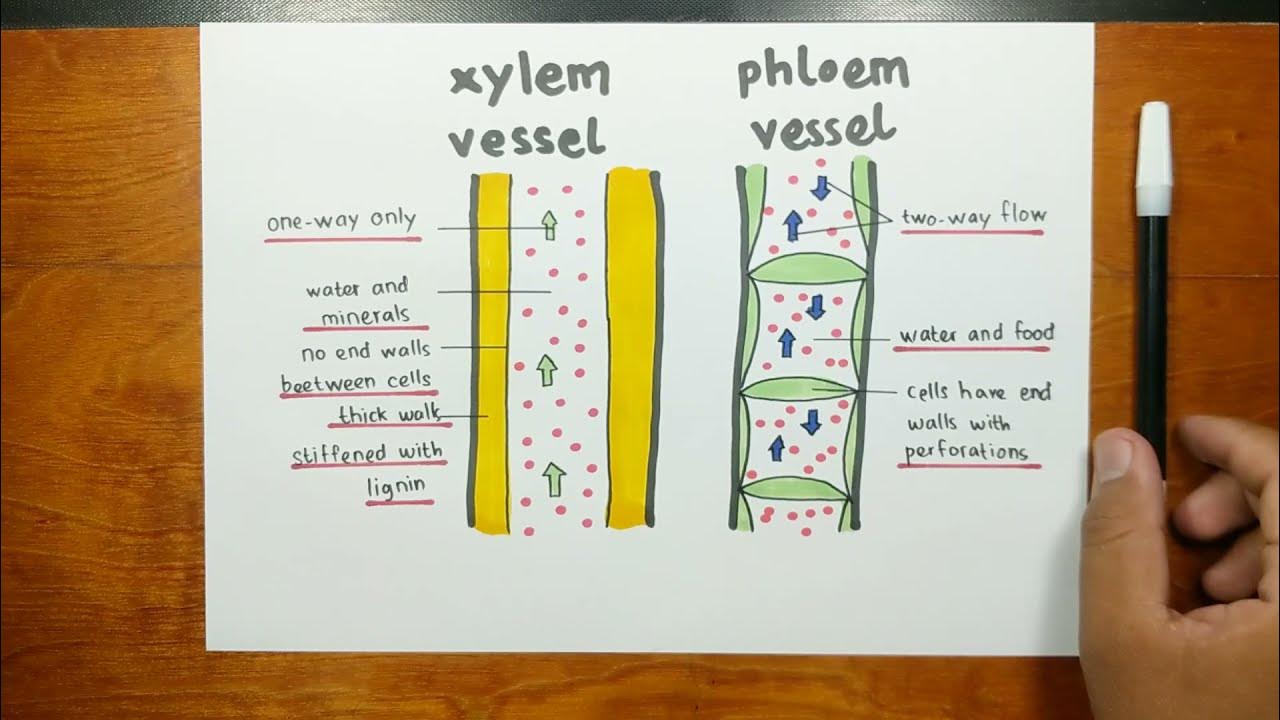 xylem
vessel
one-way only
water and
minerals
no end walls
beetween cells
thick walls
stiffened with
lignin
phloem
vessel
two-way flow
water and food
cells have end
walls with
perforations